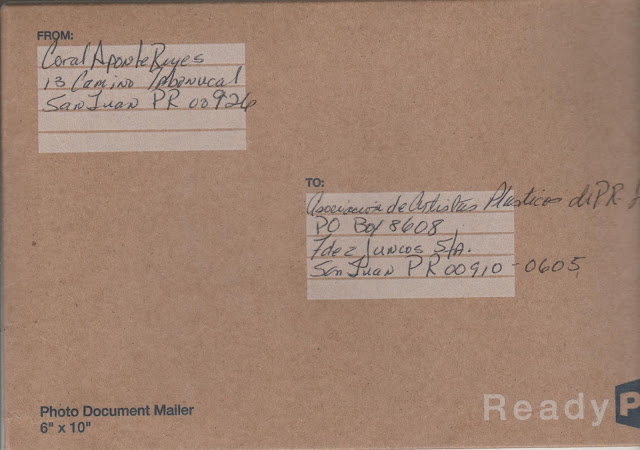 FROM:
Coral Aponte Reyes
13 Camino
San Juan PR 00926
TO:
Asociacion de Artistas Plasticos de PR.
PO Box 8608
Fdez Juncos S/A.
San Juan PR 00910-0605
Photo Document Mailer
6" x 10"
ReadyP